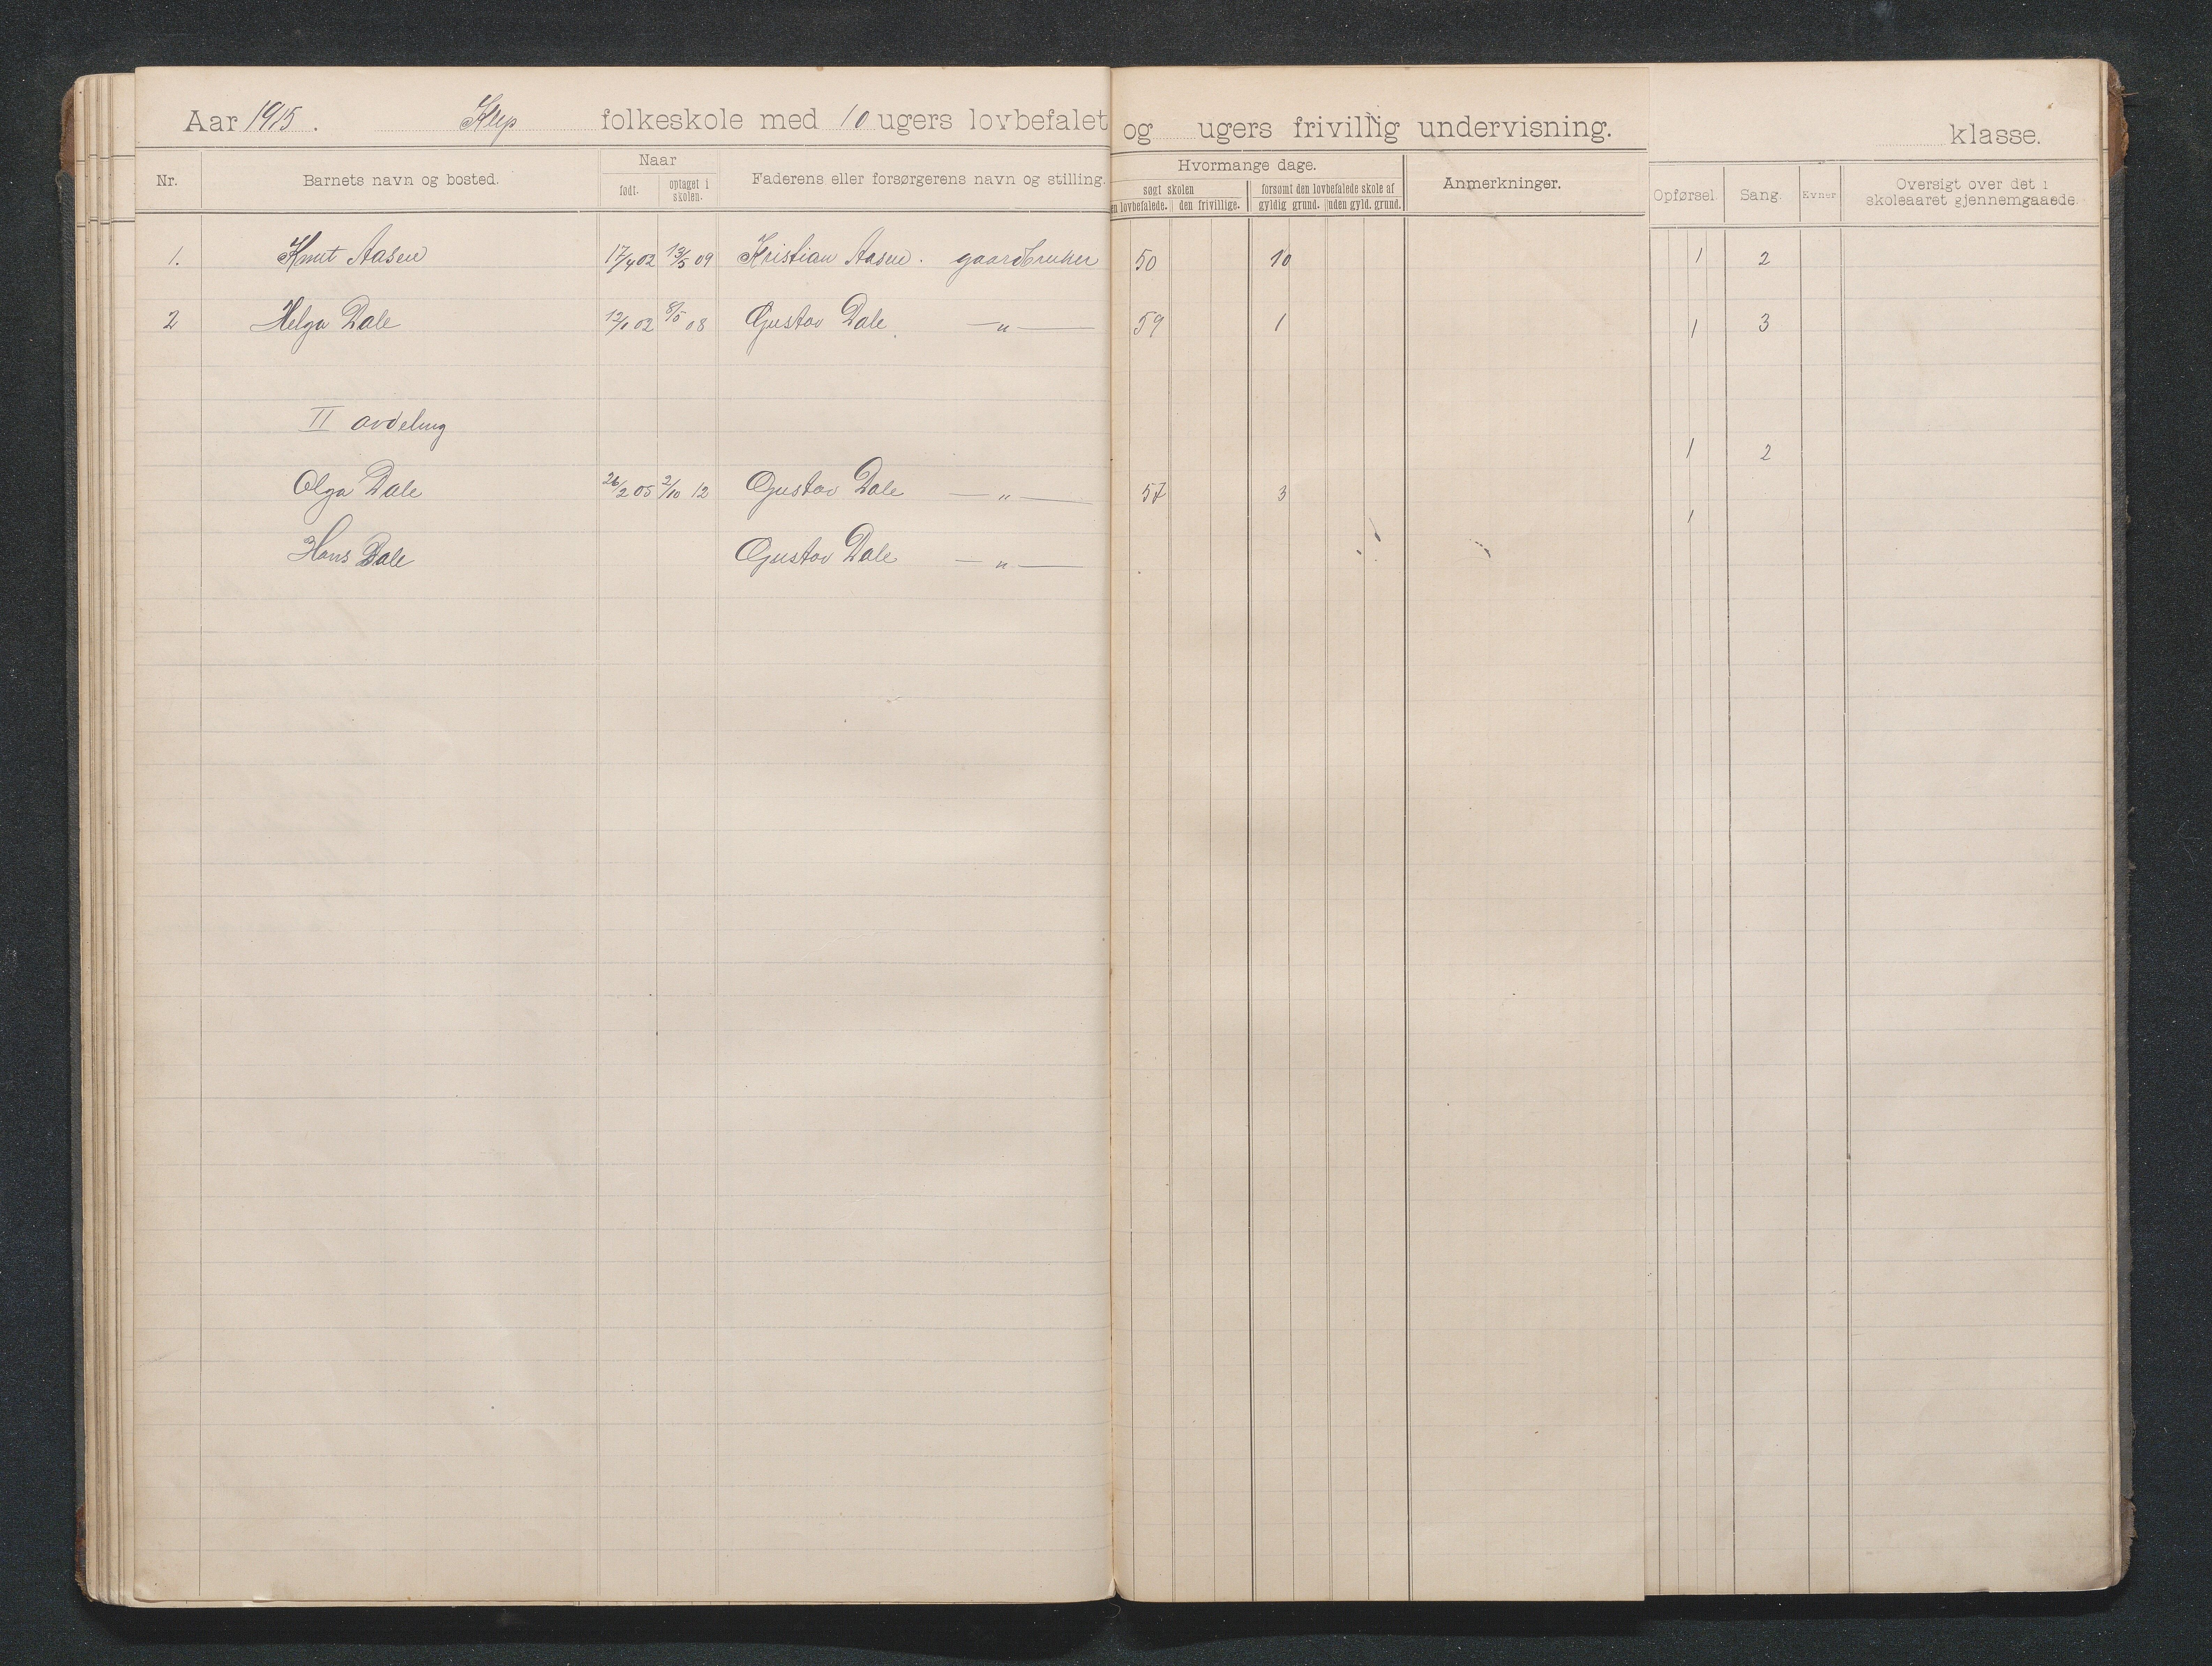 Aar 1915. Klep folkeskole med 10 ugers lovbefalet og ugers frivillig undervisning. klasse.
Nr. Barnets navn og bosted. Naar født. optaget i skolen. Faderens eller forsørgerens navn og stilling. Hvormange dage. søgt skolen en lovbefalede. den frivillige. forsømt den lovbefalede skole af gyldig grund. uden gyld. grund. Anmerkninger. Opførsel. Sang. Evner Oversigt over det i skoleaaret gjennemgaaede.
1. Knut Aasen 17/4 02 13/5 09 Kristian Aasen. gaardbruker 50 10 1 2
2 Helga Dale 12/1 02 8/5 08 Gustav Dale. — " — 59 1 1 3
II avdeling
1 2
Olga Dale 26/2 05 2/10 12 Gustav Dale — " — 57 3
1
Hans Dale Gustav Dale — " —